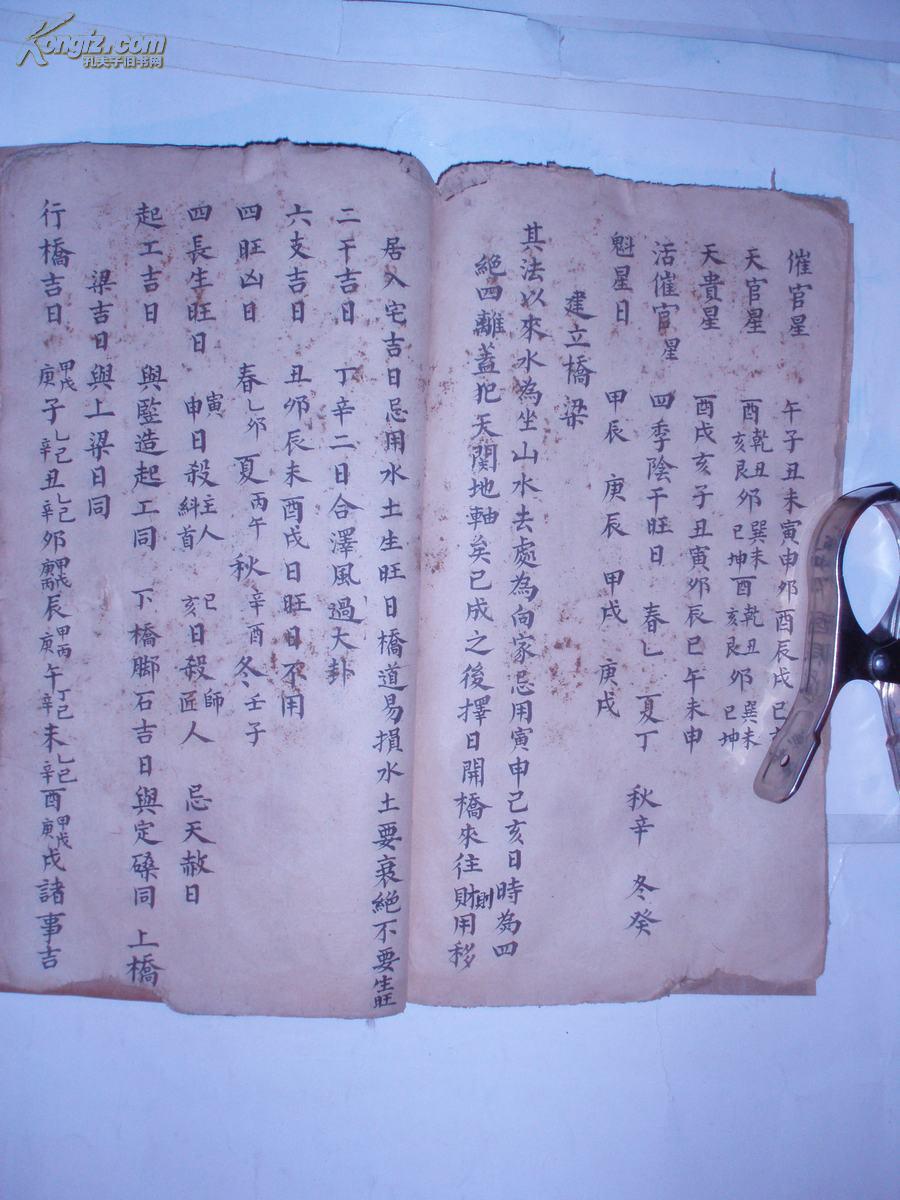 Kongfz.com
孔夫子旧书网
催官星 午子丑未寅申卯酉辰戌巳
天官星 酉乾亥丑艮卯巳巽坤未酉乾亥丑艮卯巳巽坤未
天貴星 酉戌亥子丑寅卯辰巳午未申
活催官星 四季陰干旺日 春乙 夏丁 秋辛 冬癸
魁星日 甲辰 庚辰 甲戌 庚戌
建立橋梁
其法以來水為坐山水去處為向家忌用寅申己亥日時為四
絕四離蓋犯天関地軸矣已成之後擇日開橋來往則財用移
居入宅吉日忌用水土生旺日橋道易損水土要衰絕不要生旺
二干吉日 丁辛二日合澤風過大卦
六支吉日 丑卯辰未酉戌日旺日不用
四旺凶日 春乙卯 夏丙午 秋辛酉 冬壬子
四長生旺日 寅申日殺主人糾首 巳亥日殺師匠人 忌天赦日
起工吉日 與竪造起工同 下橋脚石吉日與定磉同 上橋
梁吉日與上梁日同
行橋吉日 甲戌庚子乙己辛丑乙己辛卯甲戌庚丙辰甲丙庚午丁己辛未乙己辛酉甲戌庚戌諸事吉